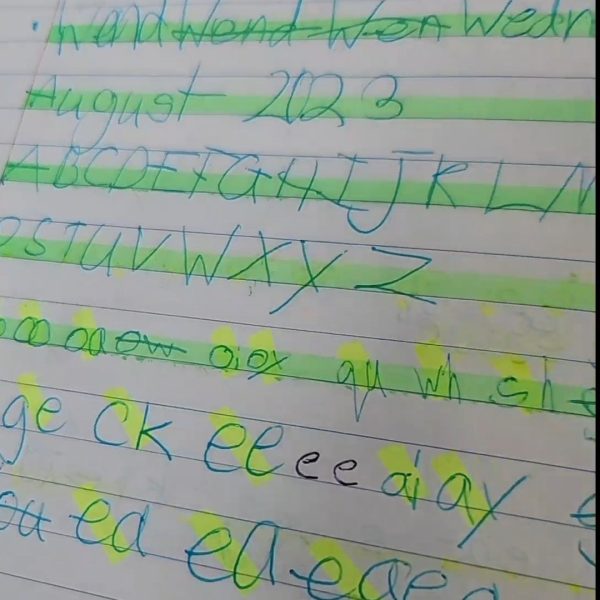 hand Wend Wen Wedn
August 2023
ABCDEFGHIJKLM
STUVWXYZ
oo oa ow oi ox qu wh sh
ge ck ee ee ai ay
ou ea ea ea